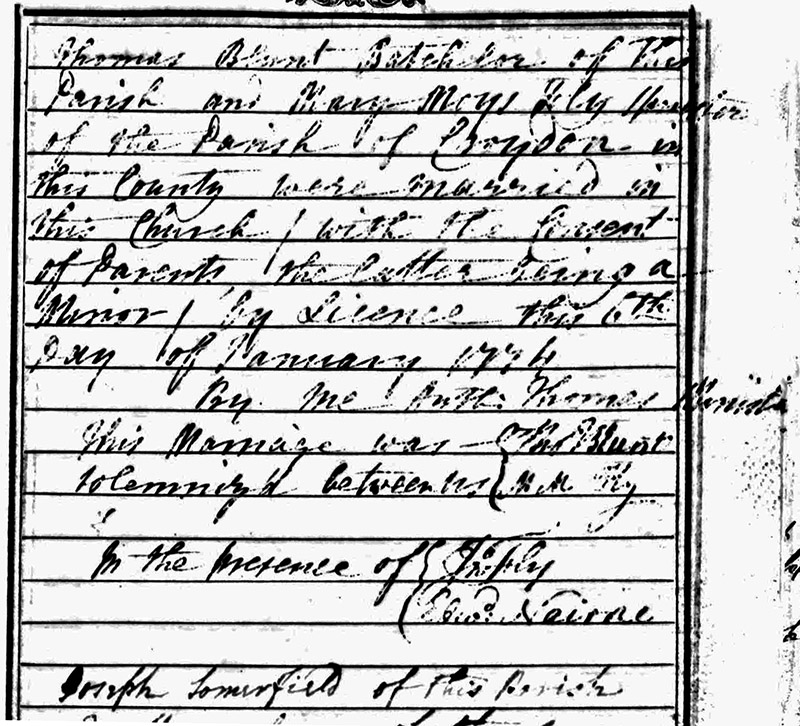 Thomas Blunt Batchelor of this
Parish and Mary Moys Fly Spinster
of the Parish of Croydon in
this County were married in
this Church / with the Consent
of Parents the latter being a
Minor / by Licence this 6th
Day of January 1774
By me Anth: Thomas Minister
This Marriage was Thos Blunt
solemniz'd between us M. M. Fly
In the Presence of Jno Fly
Edwd Nairne
Joseph Somerfield of this Parish